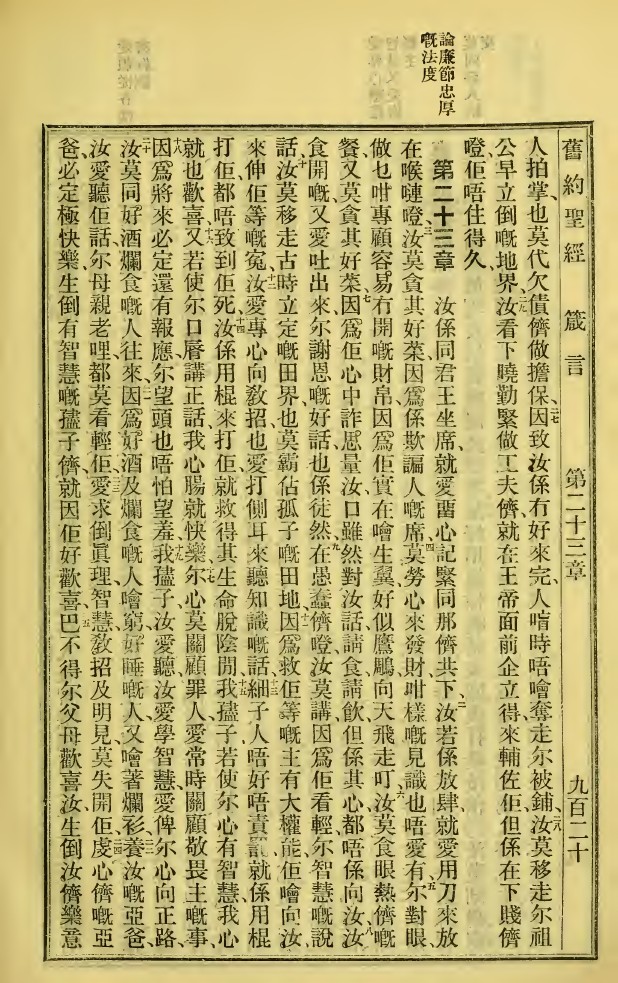 論廉節忠厚
嘅法度
舊約聖經 箴言 第二十三章 九百二十
人拍掌、也莫代欠債儕做擔保、二七因致汝係冇好來完、人啃時唔噲奪走尔被鋪、二八汝莫移走尔祖
公早立倒嘅地界、二九汝看下曉勤緊做工夫儕、就在王帝面前企立得來輔佐佢、但係在下賤儕
嶝佢唔住得久、
第二十三章 汝係同君王坐席、就愛畱心記緊同那儕共下、二汝若係放肆、就愛用刀來放
在喉嗹嶝、三汝莫貪其好菜、因爲係欺謳人嘅席、四莫勞心來發財、咁樣嘅見識也唔愛有、五尔對眼
做乜咁專顧容易冇開嘅財帛、因爲佢實在噲生翼、好似鷹鵰向天飛走叮、六汝莫食眼熱儕嘅
餐、又莫貪其好菜、七因爲佢心中詐思量、汝口雖然對汝話請食請飲、但係其心都唔係向汝、八汝
食開嘅又愛吐出來、尔謝恩嘅好話也係徒然、九在愚蠢儕嶝汝莫講、因爲佢看輕尔智慧嘅說
話、十汝莫移走古時立定嘅田界、也莫霸佔孤子嘅田地、十一因爲救佢等嘅主有大權能、佢噲向汝
來伸佢等嘅寃、十二汝愛專心向敎招、也愛打側耳來聽知識嘅話、十三細子人唔好唔責罰、就係用棍
打佢都唔致到佢死、十四汝係用棍來打佢、就救得其生命脫陰間、十五我孻子若使尔心有智慧、我心
就也歡喜、十六又若使尔口唇講正話、我心腸就快樂、十七尔心莫關顧罪人、愛常時關顧敬畏主嘅事、
十八因爲將來必定還有報應、尔望頭也唔怕望羞、十九我孻子汝愛聽、汝愛學智慧、愛俾尔心向正路、
二十汝莫同好酒爛食嘅人往來、二一因爲好酒及爛食嘅人噲窮、好睡嘅人又噲著爛衫、二二養汝嘅亞爸
汝愛聽佢話、尔母親老哩都莫看輕佢、二三愛求倒眞理智慧敎招及明見、莫失開佢、二四虔心儕嘅亞
爸必定極快樂、生倒有智慧嘅孻子儕、就因佢好歡喜、二五巴不得尔父母歡喜、汝生倒汝儕樂意